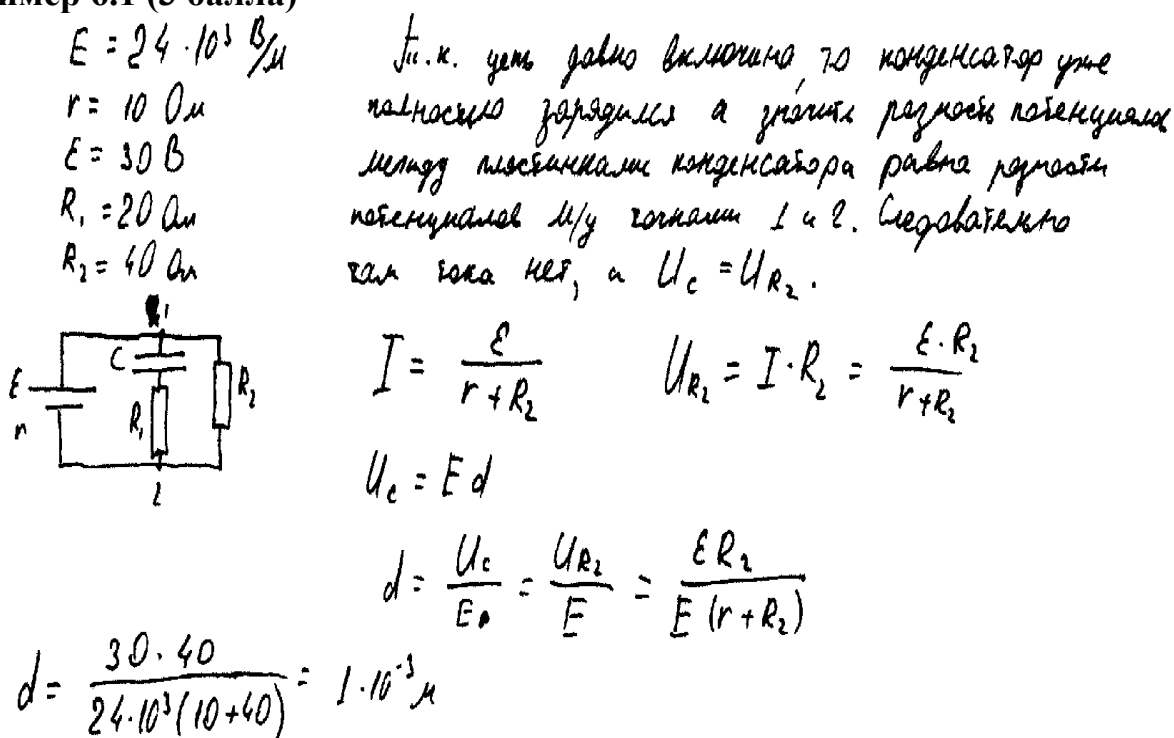 имер 6.1 (3 балла)
E = 24 · 10³ В/м
r = 10 Ом
ℰ = 30 В
R₁ = 20 Ом
R₂ = 40 Ом
Т.к. цепь давно включина, то конденсатор уже
полностью зарядился а значить разность потенциалов
между пластинками конденсатора равна разности
потенциалов м/у точками 1 и 2. Следовательно
там тока нет, и U_c = U_R₂.
1
C
ℰ
r
R₁
R₂
2
I = ℰ / (r + R₂) U_R₂ = I · R₂ = ℰ · R₂ / (r + R₂)
U_c = E d
d = U_c / E = U_R₂ / E = ℰ R₂ / (E (r + R₂))
d = 30 · 40 / (24 · 10³ (10 + 40)) = 1 · 10⁻³ м